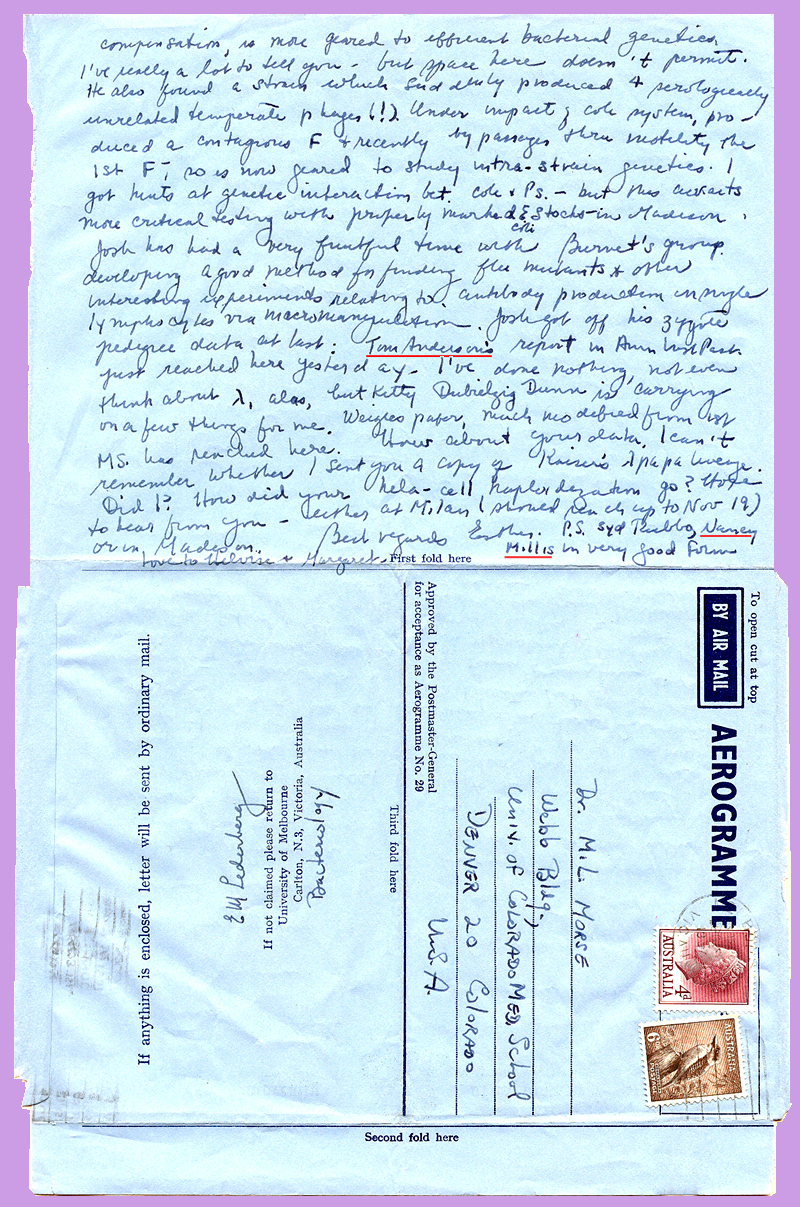 compensation, is more geared to efficient bacterial genetics.
I've really a lot to tell you - but space here doesn't permit.
He also found a strain which suddenly produced 4 serologically
unrelated temperate phages (!!). Under impact of coli system, pro-
duced a contagious F + recently by passages thru motility the
1st F-, so is now geared to study intra-strain genetics. I
got hints at genetic interaction bet. coli + PS. - but this awaits
more critical testing with properly marked stocks in Madison.
coli
Josh has had a very fruitful time with Burnet's group.
developing a good method for finding flu mutants & other
interesting experiments relating to antibody production in single
lymphocytes via macromanipulation. Josh got off his zygote
pedigree data at last: Tom Anderson's report in Ann Inst Past.
just reached here yesterday. I've done nothing, not even
think about λ, alas, but Kitty Dunn is carrying
on a few things for me. Weigles paper, much modified from 1st
MS. has reached here. How about your data, I can't
remember whether I sent you a copy of Kaiser's λ
Did I? How did your hela-cell haploidization go? Hope
to hear from you - either at Milan (should reach up to Nov 19)
or in Madison. Best regards Esther. P.S. Syd Rubbo, Nancy
Millis in very good form
Love to + Margaret.
First fold here
To open cut at top
BY AIR MAIL
AEROGRAMME
Approved by the Postmaster-General
for acceptance as Aerogramme No. 29
AUSTRALIA
4d
AUSTRALIA
6D
POSTAGE
Dr. M. L. MORSE
Webb Bldg.,
Univ. of COLORADO MED. School
DENVER 20 COLORADO
U.S.A.
Third fold here
If not claimed please return to
University of Melbourne
Carlton, N.3, Victoria, Australia
Bacteriology
EM Lederberg
If anything is enclosed, letter will be sent by ordinary mail.
Second fold here